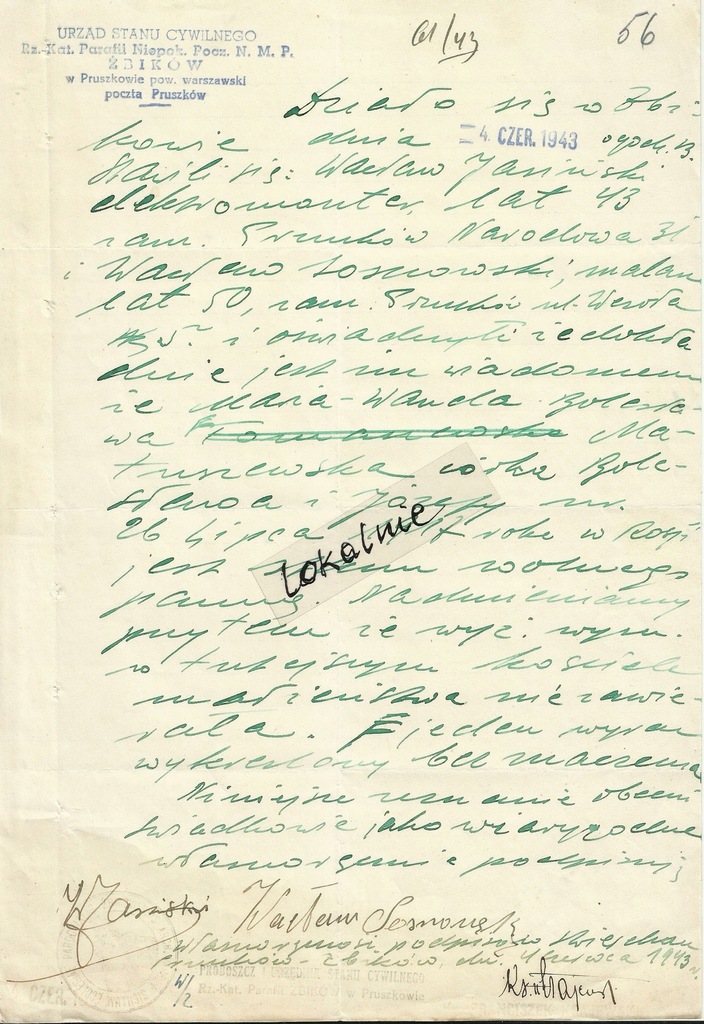 URZĄD STANU CYWILNEGO
Rz.-Kat. Parafii Niepok. Pocz. N. M. P.
ŻBIKÓW
w Pruszkowie pow. warszawski
poczta Pruszków
61/43
56
Działo się w Żbi-
kowie dnia 4. CZER. 1943 o godz. 13.
Stawili się: Wacław Jasiński
elektromonter, lat 43
zam. Pruszków Narodowa 31
i Wacław Sosnowski, malarz
lat 50, zam. Pruszków ul. Wesoła
i oświadczyli że dokła
dnie jest im wiadomem
że Maria-Wanda Bolesła-
wa Tomaszewska Ma-
tuszewska córka Bole-
sława i Józefy ur.
26 Lipca roku w Rosji
jest stanu wolnego
panną. Nadmieniamy
przytem że wyż. wym.
w tutejszym kościele
małżeństwa nie zawie-
rała. jeden wyraz
wykreślony bez znaczenia
Niniejsze zeznanie obecni
świadkowie jako wiarygodne
własnoręcznie podpisują
Lokalnie
W Jasiński
Wacław Sosnowski
Własnoręczność podpisów stwierdzam
Pruszków-Żbików, dn. 4 czerwca 1943 r.
PROBOSZCZ I URZĘDNIK STANU CYWILNEGO
Rz.-Kat. Parafii ŻBIKÓW w Pruszkowie